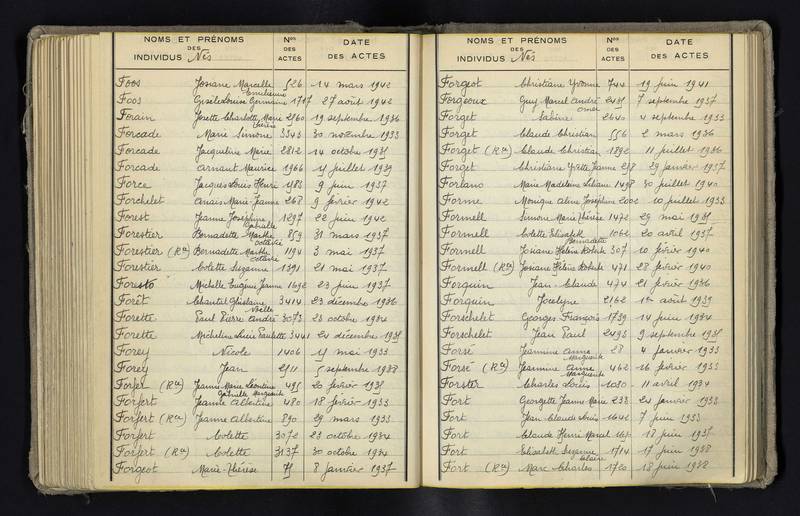 NOMS ET PRÉNOMS
DES
INDIVIDUS Nés
Nos
DES
ACTES
DATE
DES ACTES
Foos Josiane Marcelle 526 14 mars 1942
Emilienne
Foos Gysèle Louise Germaine 1717 27 août 1942
Forain Josette Charlotte Marie 2960 19 septembre 1936
Forcade Marie Simone 3343 30 novembre 1933
Forcade Jacqueline Marie 2812 14 octobre 1935
Forcade Arnaut Maurice 1966 5 juillet 1939
Force Jacques Louis Henri 1585 9 juin 1937
Forchelet Anaïs Marie-Jeanne 268 9 février 1942
Forest Jeanne Joséphine 1297 22 juin 1942
Gabrielle
Forestier Bernadette Marthe 859 31 mars 1937
Octavie
Forestier (Rn) Bernadette Marthe 1194 3 mai 1937
Octavie
Forestier Colette Suzanne 1391 21 mai 1937
Foresto Michelle Eugénie Jeanne 1692 23 juin 1937
Forêt Chantal Ghislaine 3414 23 décembre 1936
Noëlle
Forette Paul Pierre André 3073 23 octobre 1934
Forette Micheline Lucie Paulette 3441 24 décembre 1935
Forey Nicole 1406 5 mai 1933
Forey Jean 2511 5 septembre 1938
Forfer (Rn) Jeanne Marie Léontine 495 20 février 1935
Gabrielle Marguerite
Forfert Jeanne Albertine 480 18 février 1933
Forfert (Rn) Jeanne Albertine 890 29 mars 1933
Forfert Colette 3072 23 octobre 1934
Forfert (Rn) Colette 3137 30 octobre 1934
Forgeot Marie-Thérèse 75 8 janvier 1937
NOMS ET PRÉNOMS
DES
INDIVIDUS Nés
Nos
DES
ACTES
DATE
DES ACTES
Forgeot Christiane Yvonne 744 19 juin 1941
Forgeoux Guy Marcel André 2451 7 septembre 1937
Omer
Forget Sabine 2640 4 septembre 1933
Forget Claude Christian 556 2 mars 1936
Forget (Rn) Claude Christian 1892 11 juillet 1936
Forget Christiane Yvette Jeanne 258 29 janvier 1937
Forlano Marie Madeleine Liliane 1498 30 juillet 1940
Forme Monique Aline Joséphine 2002 10 juillet 1933
Formell Simone Marie Thérèse 1472 29 mai 1935
Formell Colette Elisabeth 1062 20 avril 1937
Bernadette
Formell Josiane Hélène Roberte 307 10 février 1940
Formell (Rn) Josiane Hélène Roberte 471 28 février 1940
Forquin Jean-Claude 474 21 février 1936
Forquin Jocelyne 2162 1er août 1939
Forschelet Georges François 1739 14 juin 1934
Forschelet Jean Paul 2493 9 septembre 1935
Forsé Jeannine Anne 28 4 janvier 1933
Marguerite
Forsé (Rn) Jeannine Anne 462 16 février 1933
Marguerite
Forster Charles Louis 1080 11 avril 1934
Fort Georgette Jeanne Marie 238 24 janvier 1933
Fort Jean Claude Louis 1642 7 juin 1933
Fort Claude Henri Marcel 18 juin 1937
Fort Elisabeth Suzanne 1714 17 juin 1938
Claire
Fort (Rn) Marc Charles 1720 18 juin 1938